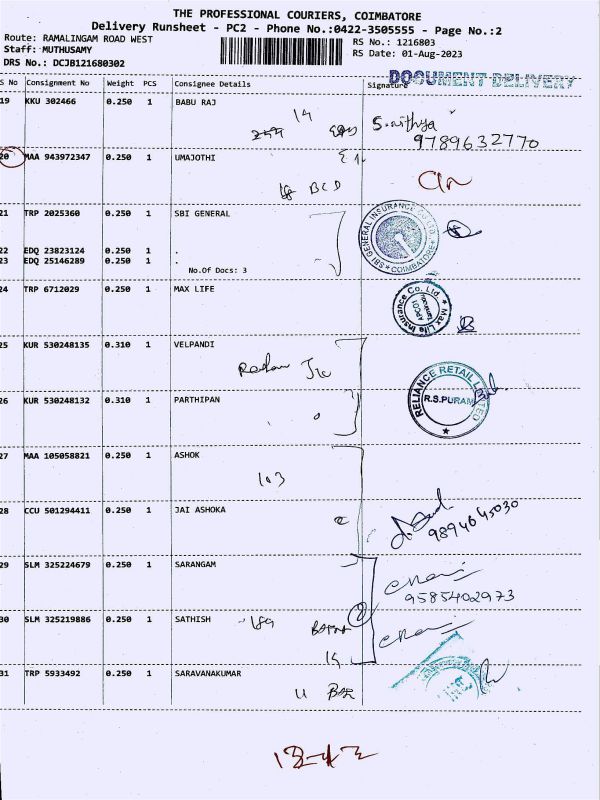 THE PROFESSIONAL COURIERS, COIMBATORE
Delivery Runsheet - PC2 - Phone No.:0422-3505555 - Page No.:2
Route: RAMALINGAM ROAD WEST
RS No.: 1216803
Staff: MUTHUSAMY
RS Date: 01-Aug-2023
DRS No.: DCJB121680302
DOCUMENT DELIVERY
S No Consignment No Weight PCS Consignee Details Signature
19 KKU 302466 0.250 1 BABU RAJ
14
S.nithya
9789632770
20 MAA 943972347 0.250 1 UMAJOTHI
BCD
21 TRP 2025360 0.250 1 SBI GENERAL
SBI GENERAL INSURANCE Co. LTD. * COIMBATORE *
22 EDQ 23823124 0.250 1 .
23 EDQ 25146289 0.250 1 .
No.Of Docs: 3
24 TRP 6712029 0.250 1 MAX LIFE
Max Life Insurance Co. Ltd.
25 KUR 530248135 0.310 1 VELPANDI
RELIANCE RETAIL LIMITED
R.S.PURAM
26 KUR 530248132 0.310 1 PARTHIPAN
27 MAA 105058821 0.250 1 ASHOK
103
28 CCU 501294411 0.250 1 JAI ASHOKA
9894645030
29 SLM 325224679 0.250 1 SARANGAM
9585402973
30 SLM 325219886 0.250 1 SATHISH
31 TRP 5933492 0.250 1 SARAVANAKUMAR